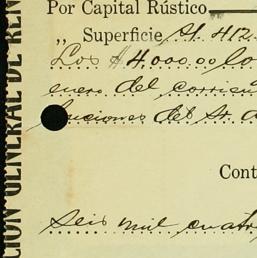 Por Capital Rústico
„ Superficie $1.412
Los $4,000.00 lo
enero del corrien
luciones del Sr. a
Cont
Seis mil cuatr
CION GENERAL DE REN